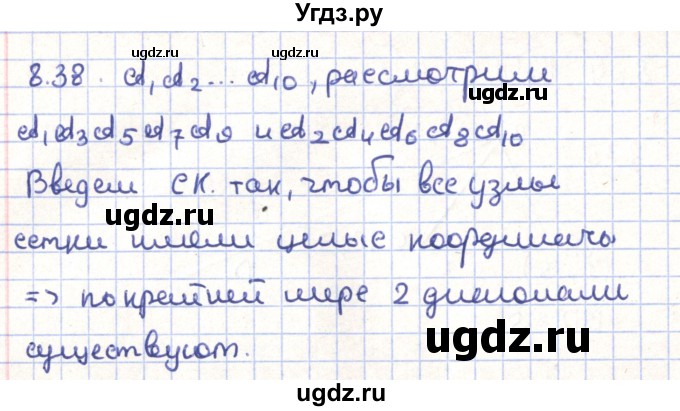 Угдз.ру
ugdz.ru ugdz.ru
8.38. A₁A₂...A₁₀, рассмотрим
ugdz.ru
A₁A₃A₅A₇A₉ и A₂A₄A₆A₈A₁₀
Введем СК. так, чтобы все узлы
ugdz.ru ugdz.ru
сетки имели целые координаты
=> по крайней мере 2 диагонали
ugdz.ru
существуют.
ugdz.ru
ugdz.ru